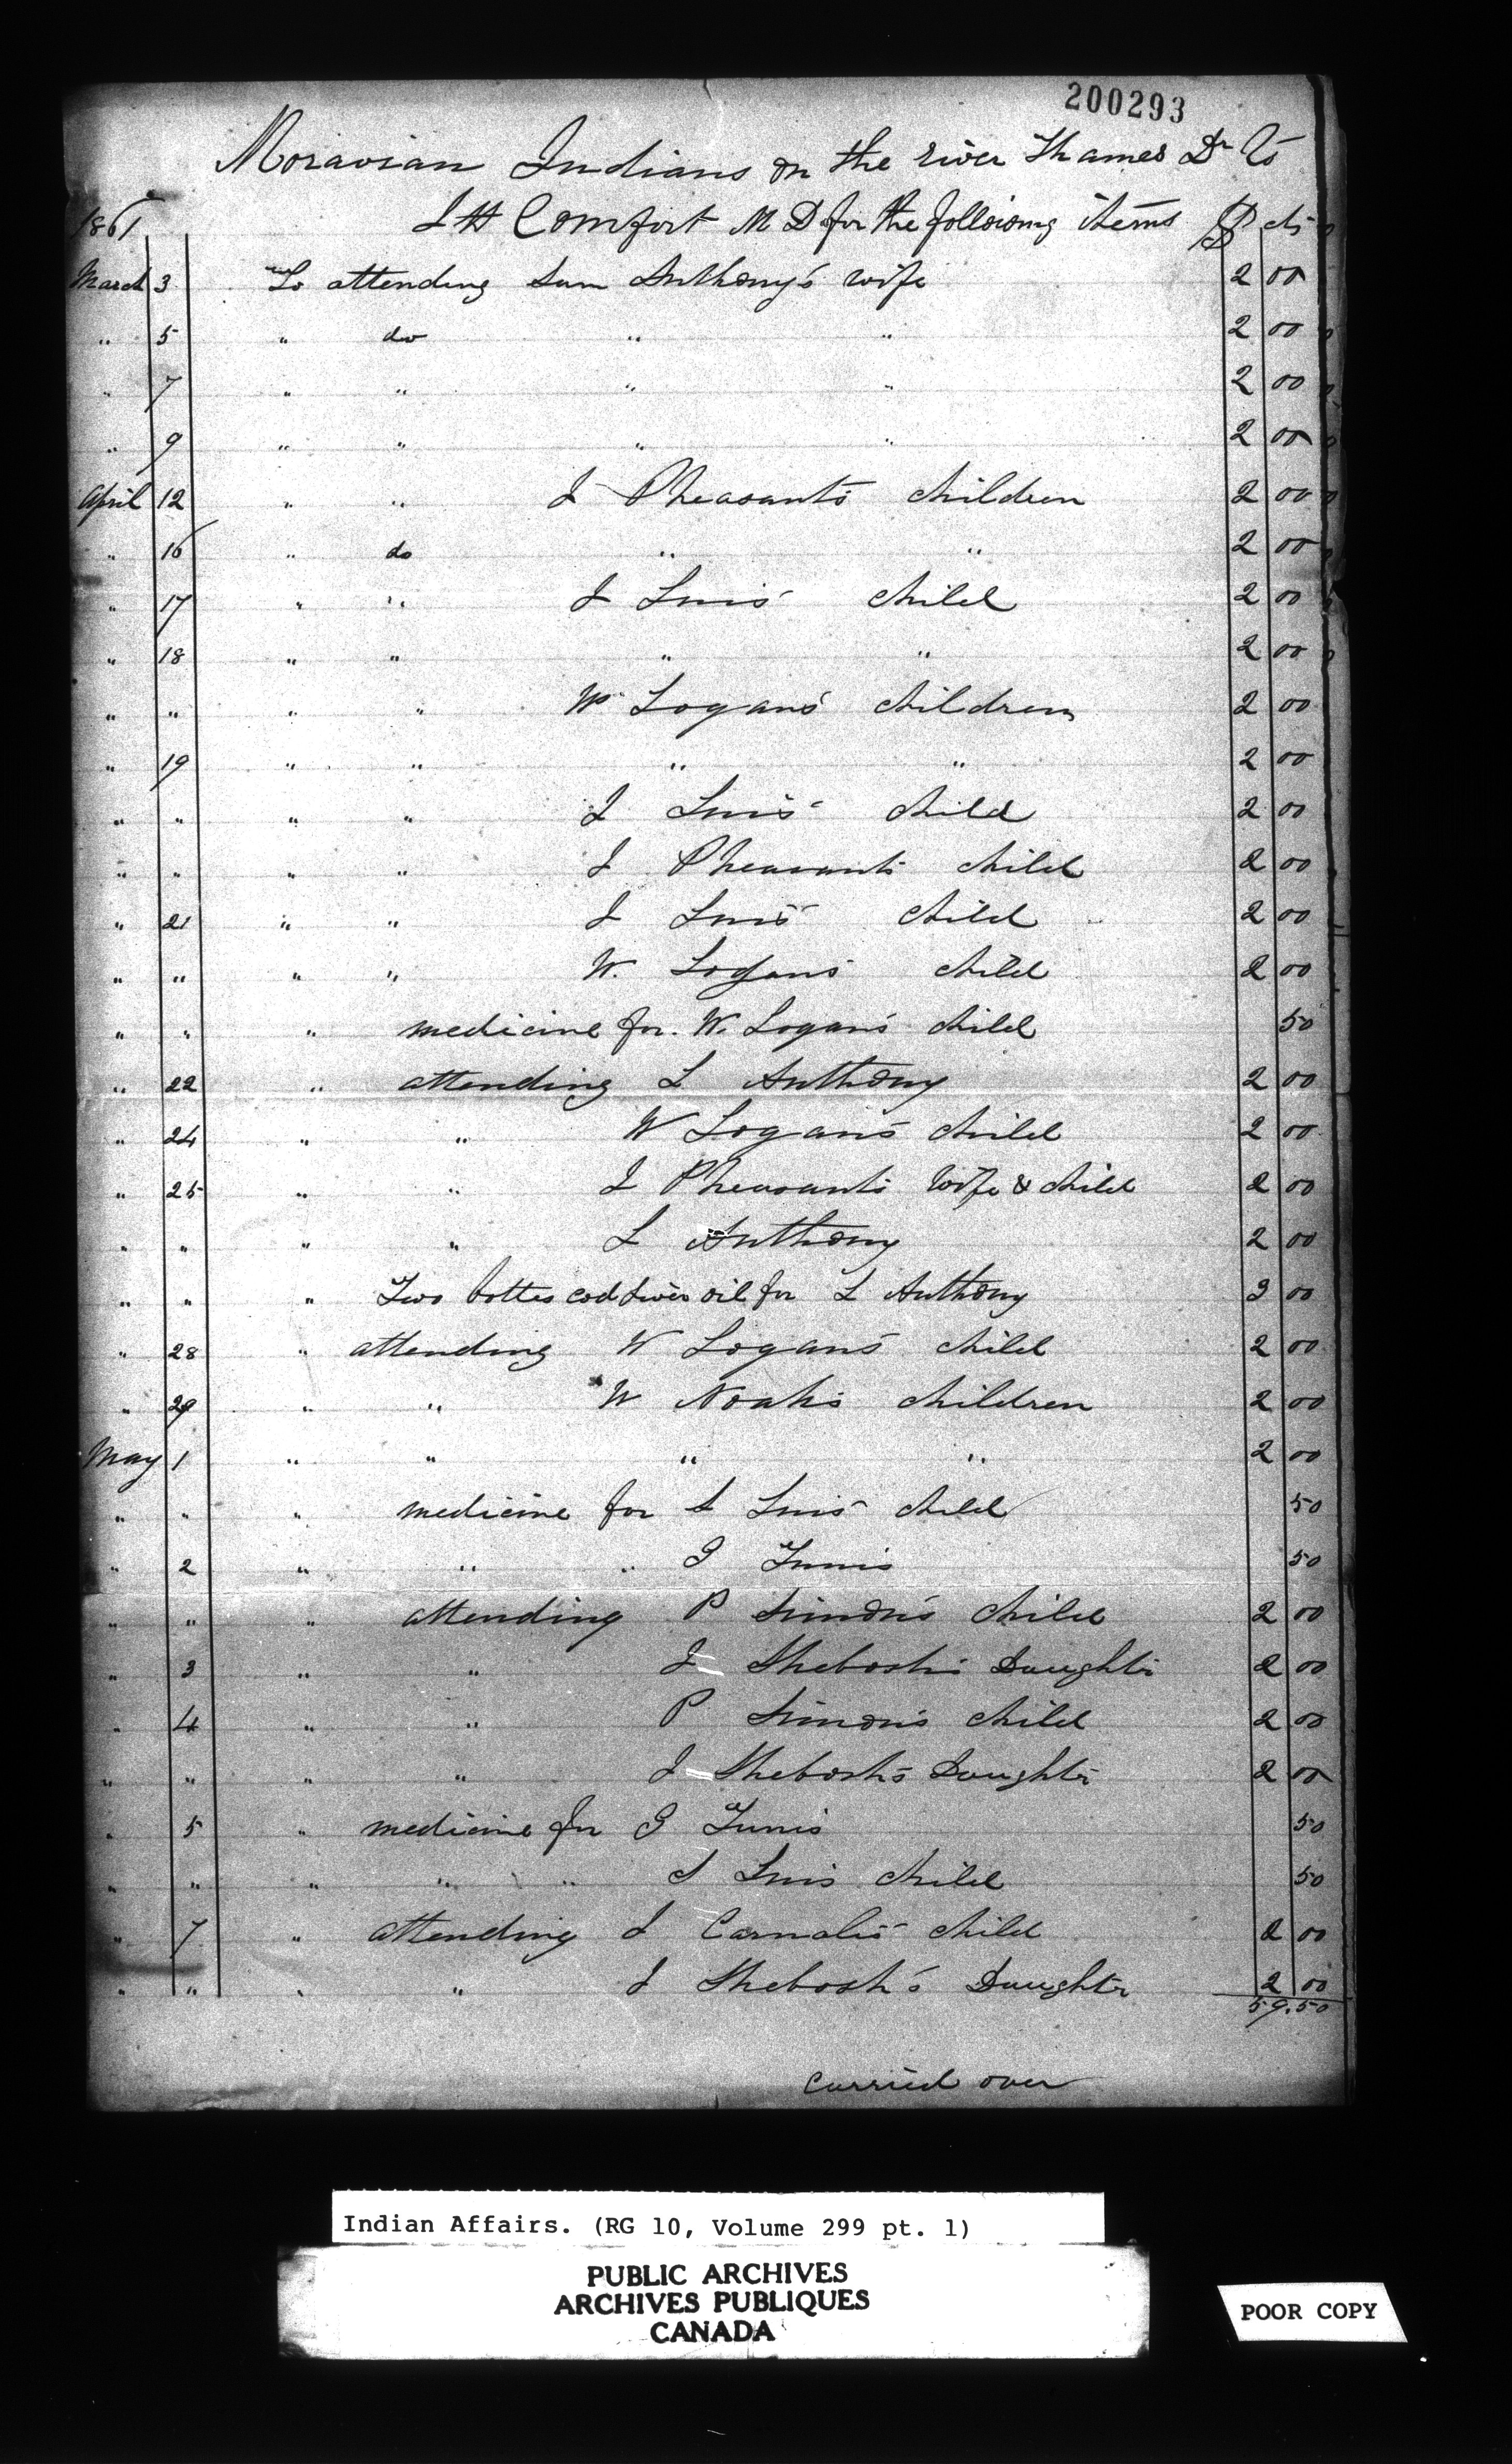 200293
Moravian Indians on the river Thames Dr To
1861 J H Comfort M D for the following items $ cts
March 3 To attending Sam Anthony's wife 2 00
" 5 " do " " 2 00
" 7 " " " " 2 00
" 9 " " " " 2 00
April 12 " " J Pheasants children 2 00
" 16 " do " " 2 00
" 17 " " J Luis child 2 00
" 18 " " " " 2 00
" " " " W Logans children 2 00
" 19 " " " " 2 00
" " " " J Luis child 2 00
" " " " J Pheasants child 2 00
" 21 " " J Luis child 2 00
" " " " W. Logans child 2 00
" " " medicine for W. Logans child 50
" 22 " attending L Anthony 2 00
" 24 " " W Logans child 2 00
" 25 " " J Pheasants wife & child 2 00
" " " " L Anthony 2 00
" " " Two bottes cod liver oil for L Anthony 3 00
" 28 " attending W Logans child 2 00
" 29 " " W Noahs children 2 00
May 1 " " " " 2 00
" " " medicine for S Luis child 50
" 2 " " " J Tunis 50
" " " attending P Simons child 2 00
" 3 " " J Sheboshs Daughtr 2 00
" 4 " " P Simons child 2 00
" " " " J Sheboshs Daughtr 2 00
" 5 " medicine for J Tunis 50
" " " " " S Luis child 50
" 7 " attending J Carnalis child 2 00
" " " " J Shebosh's Daughtr 2 00
59.50
carried over
Indian Affairs. (RG 10, Volume 299 pt. 1)
PUBLIC ARCHIVES
ARCHIVES PUBLIQUES
CANADA
POOR COPY